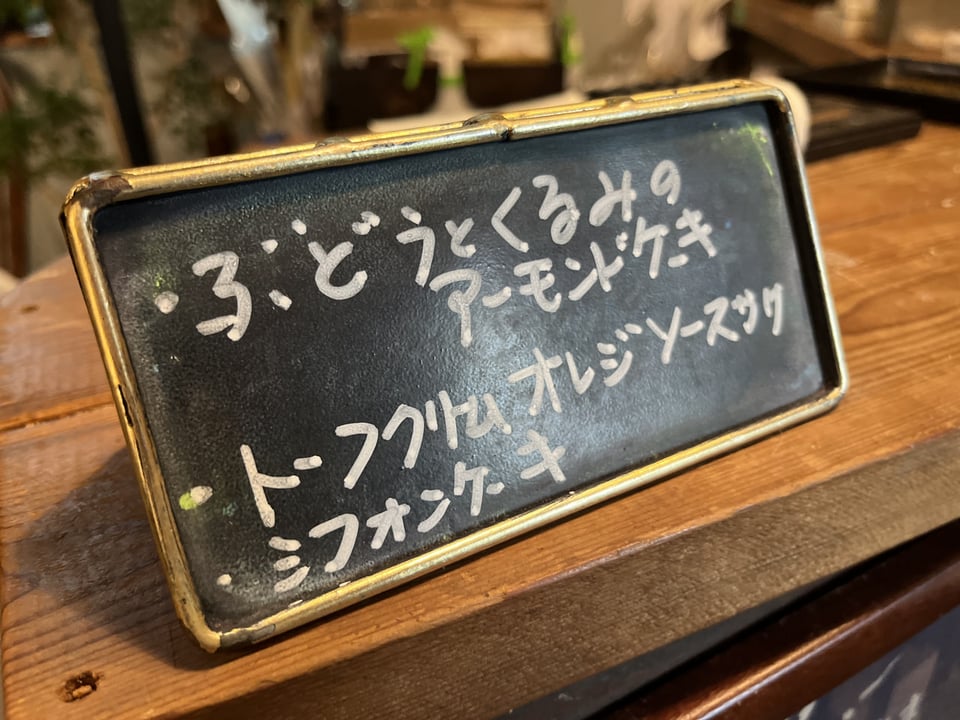 ・ぶどうとくるみの
アーモンドケーキ
・トーフクリーム オレンジソースサンタ
・シフォンケーキ